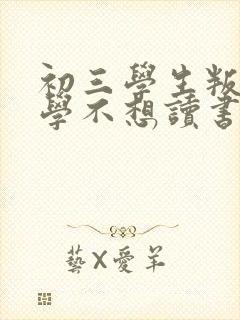 初三學生叛
學不想讀書
藝X愛羊